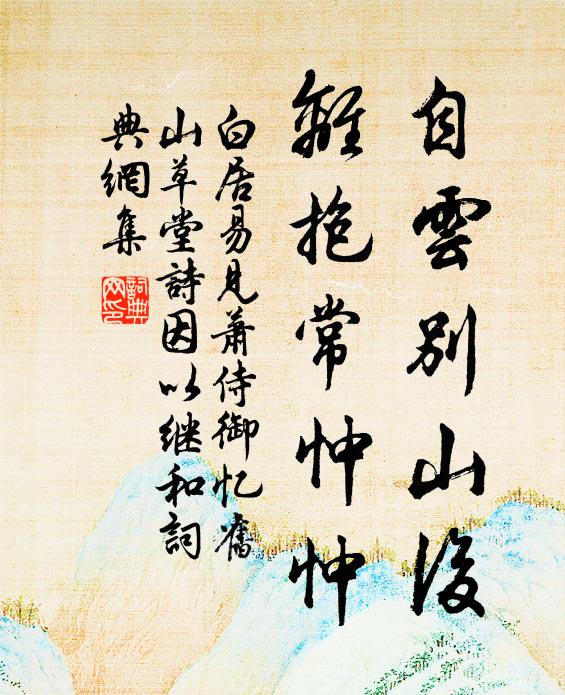 自雲別山後
離抱常忡忡
白居易見蕭侍御忆舊
山草堂詩因以继和詞
典網集
詞典網印